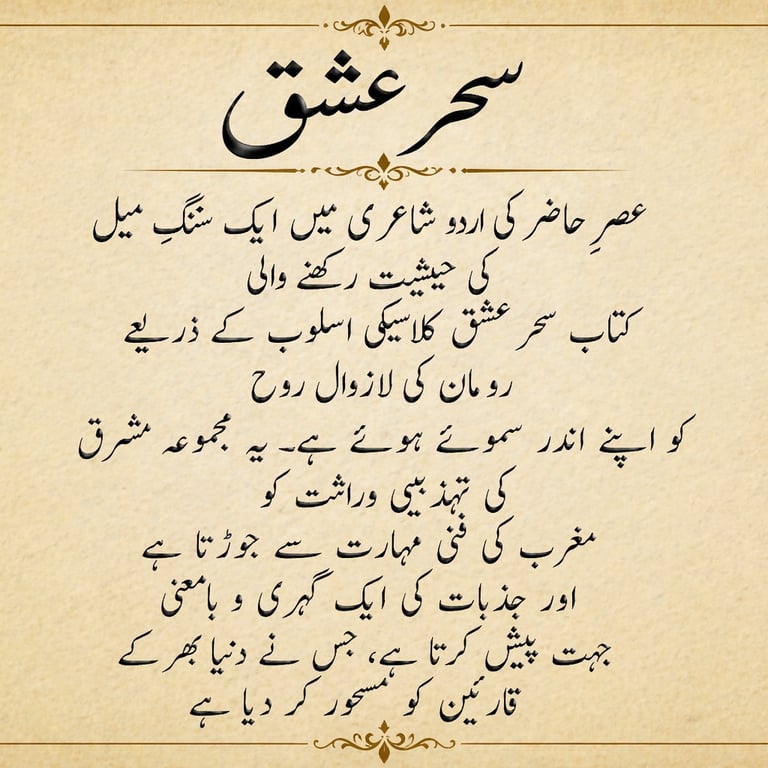 سحر عشق
عصرِ حاضر کی اردو شاعری میں ایک سنگِ میل
کی حیثیت رکھنے والی
کتاب سحر عشق کلاسیکی اسلوب کے ذریعے
رومان کی لازوال روح
کو اپنے اندر سموئے ہوئے ہے۔ یہ مجموعہ مشرق
کی تہذیبی وراثت کو
مغرب کی فنی مہارت سے جوڑتا ہے
اور جذبات کی ایک گہری و بامعنی
جہت پیش کرتا ہے، جس نے دنیا بھر کے
قارئین کو مسحور کر دیا ہے